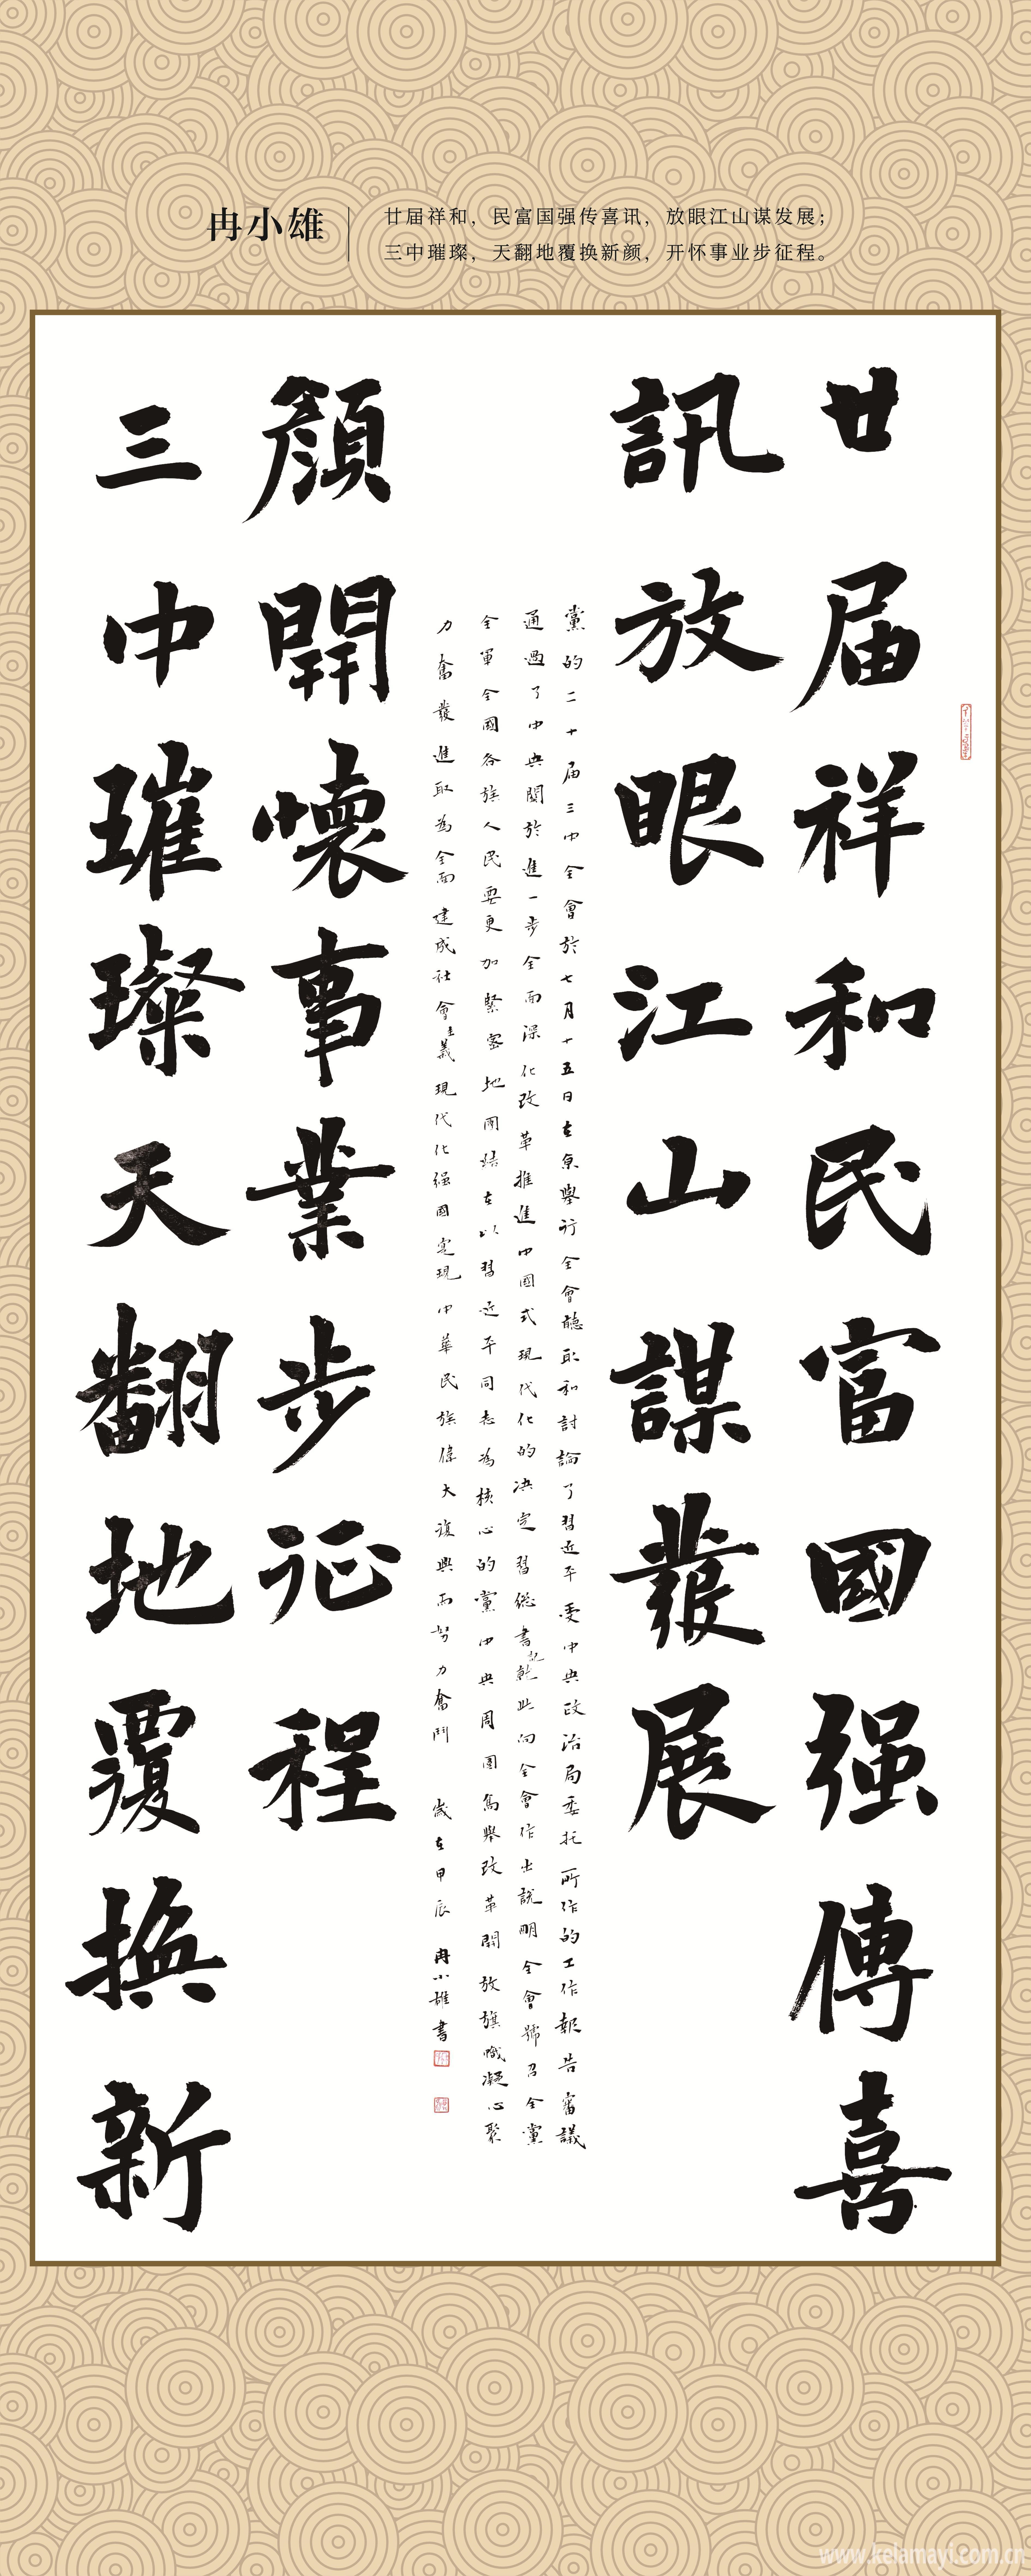 冉小雄
廿届祥和，民富国强传喜讯，放眼江山谋发展；
三中璀璨，天翻地覆换新颜，开怀事业步征程。
廿届祥和民富國强傳喜
訊放眼江山謀發展
黨的二十届三中全會於七月十五日在京舉行全會聽取和討論了習近平受中央政治局委托所作的工作報告審議
通過了中央關於進一步全面深化改革推進中國式現代化的决定習總書記就此向全會作出説明全會號召全黨
全軍全國各族人民要更加緊密地團結在以習近平同志為核心的黨中央周圍高舉改革開放旗幟凝心聚
力奮發進取為全面建成社會主義現代化强國實現中華民族偉大復興而努力奮鬥 歲在甲辰 冉小雄書
顔開懷事業步征程
三中璀璨天翻地覆換新
www.kelamayi.com.cn